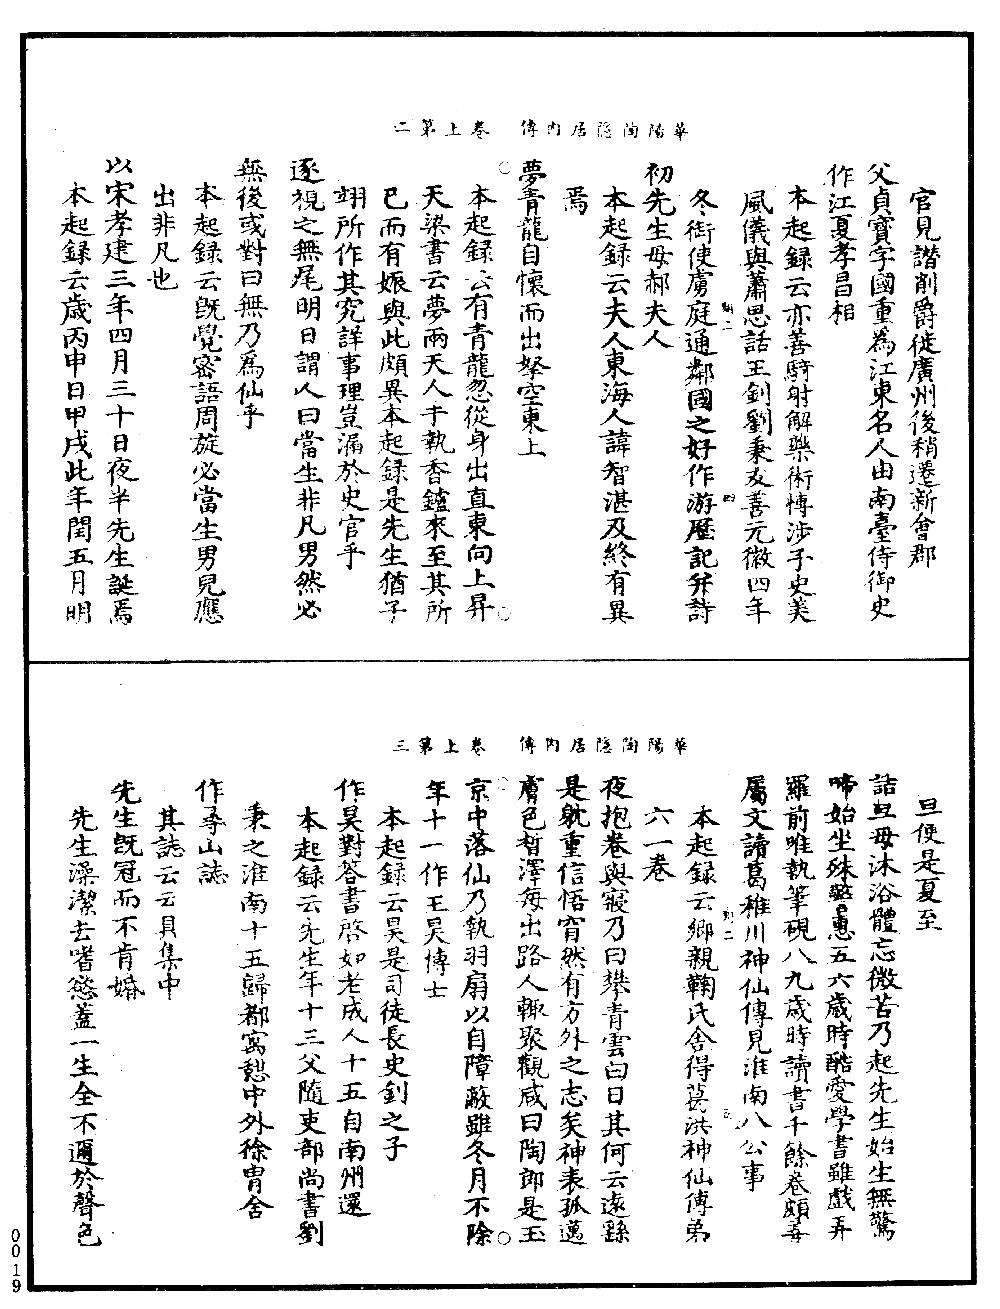 華陽陶隱居內傳　卷上第二
官見譖削爵徙廣州後稍遷新會郡
父貞寶字國重為江東名人由南臺侍御史
作江夏孝昌相
本起録云亦善騎射解藥術博涉子史美
風儀與蕭思話王釗劉秉友善元徽四年
冬銜使虜庭通鄰國之好作游歷記并詩
初先生母郝夫人
本起録云夫人東海人諱智湛及終有異
焉
夢青龍自懷而出拏空東上
本起録云有青龍忽從身出直東向上昇
天梁書云夢兩天人手執香鑪來至其所
已而有娠與此頗異本起録是先生猶子
翊所作其究詳事理豈漏於史官乎
逐視之無尾明日謂人曰當生非凡男然必
無後或對曰無乃為仙乎
本起録云既覺密語周旋必當生男兒應
出非凡也
以宋孝建三年四月三十日夜半先生誕焉
本起録云歲丙申日甲戌此年閏五月明
華陽陶隱居內傳　卷上第三
旦便是夏至
詰旦母沐浴體忘微苦乃起先生始生無驚
啼始坐殊聰惠五六歲時酷愛學書雖戲弄
羅前唯執筆硯八九歲時讀書千餘卷頗善
屬文讀葛稚川神仙傳見淮南八公事
本起録云鄉親鞠氏舍得葛洪神仙傳弟
六一卷
夜抱卷與寢乃曰攀青雲白日其何云遠繇
是躭重信悟窅然有方外之志矣神表孤邁
膚色皙澤每出路人輙聚觀咸曰陶郎是玉
京中落仙乃執羽扇以自障蔽雖冬月不除
年十一作王昊博士
本起録云昊是司徒長史釗之子
作昊對答書啓如老成人十五自南州還
本起録云先生年十三父隨吏部尚書劉
秉之淮南十五歸都寓憇中外徐胄舍
作尋山誌
其誌云云具集中
先生既冠而不肯婚
先生澡潔去嗜慾蓋一生全不邇於聲色
0019